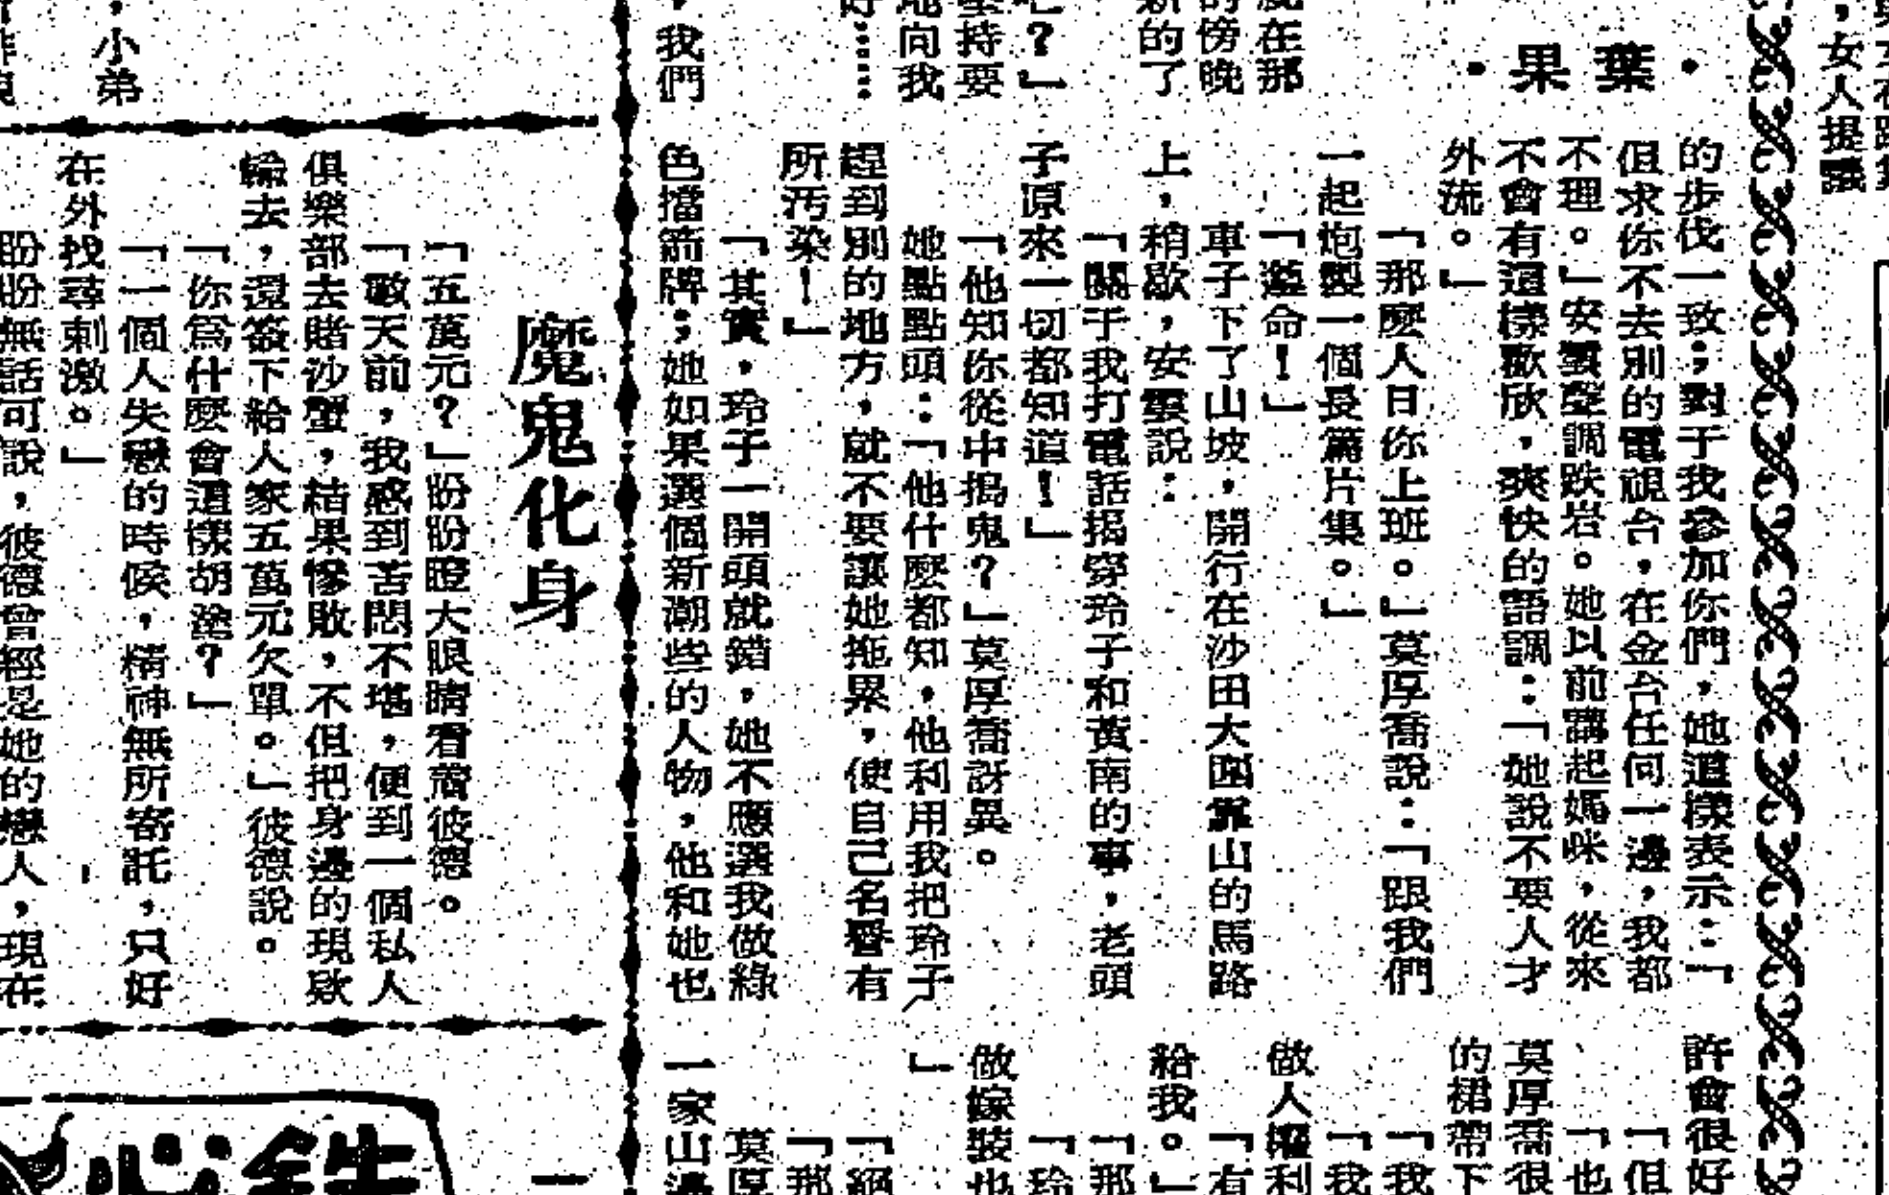 ，女人提議
・葉果・
就在那
的傍晚
新的了
吧？」
堅持要
地向我
好……
，我們
的步伐一致；對于我參加你們，她這樣表示：「
但求你不去別的電視台，在金台任何一邊，我都
不理。」安雲聲調跌宕。她以前講起媽咪，從來
不會有這樣歡欣，爽快的語調：「她說不要人才
外流。」
「那麼人日你上班。」莫厚喬說：「跟我們
一起炮製一個長篇片集。」
「遵命！」
車子下了山坡，開行在沙田大圍靠山的馬路
上，稍歇，安雲說：
「關于我打電話揭穿玲子和黃南的事，老頭
子原來一切都知道！」
「他知你從中搗鬼？」莫厚喬訝異。
她點點頭：「他什麼都知，他利用我把玲子
趕到別的地方，就不要讓她拖累，使自己名譽有
所汚染！」
「其實，玲子一開頭就錯，她不應選我做綠
色擋箭牌；她如果選個新潮些的人物，他和她也
許會很好
「但
「也
莫厚喬很
的裙帶下
「我
「我
做人權利
「有
給我。」
「那
「玲
做嫁裝也
」
「絕
「那
莫厚
一家山邊
，小弟
魔鬼化身
「五萬元？」盼盼瞪大眼睛看着彼德。
「數天前，我感到苦悶不堪，便到一個私人
俱樂部去賭沙蟹，結果慘敗，不但把身邊的現欵
輸去，還簽下給人家五萬元欠單。」彼德說。
「你爲什麼會這樣胡塗？」
「一個人失戀的時候，精神無所寄託，只好
在外找尋刺激。」
盼盼無話可說，彼德曾經是她的戀人，現在
一